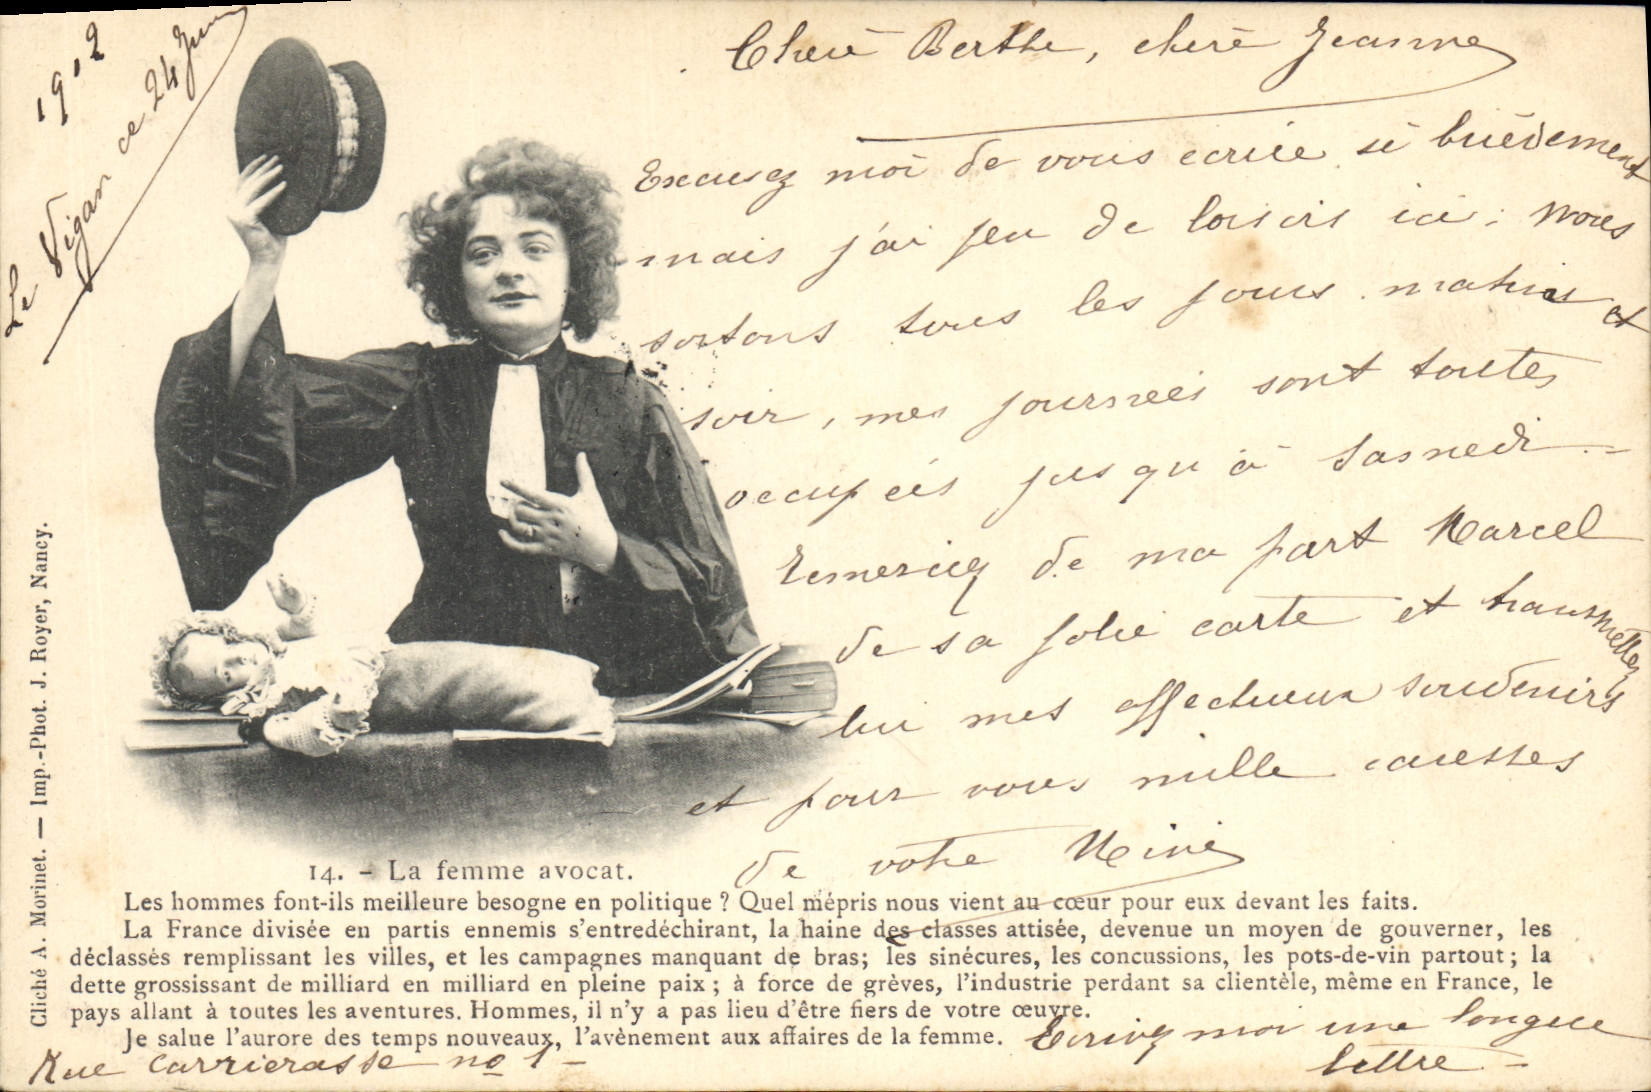 1902
Le Vigan ce 24 Juin
Cheré Berthe, cherè Jeanne
Excusez moi de vous ecrire si brièvement
mais j'ai peu de loisirs ici ; nous
sortons tous les jours matin et
soir, mes journées sont toutes
occupées jusqu'à samedi.
Remerciez de ma part Marcel
de sa jolie carte et transmettez
lui mes affectueux souvenirs
et pour vous mille caresses
de votre Mimi
14. - La femme avocat.
Les hommes font-ils meilleure besogne en politique ? Quel mépris nous vient au cœur pour eux devant les faits.
La France divisée en partis ennemis s'entredéchirant, la haine des classes attisée, devenue un moyen de gouverner, les
déclassés remplissant les villes, et les campagnes manquant de bras; les sinécures, les concussions, les pots-de-vin partout ; la
dette grossissant de milliard en milliard en pleine paix ; à force de grèves, l'industrie perdant sa clientèle, même en France, le
pays allant à toutes les aventures. Hommes, il n'y a pas lieu d'être fiers de votre œuvre.
Je salue l'aurore des temps nouveaux, l'avènement aux affaires de la femme.
Ecrivez moi une longue
lettre -
Rue Carrierasse no 1 -
Cliché A. Morinet. — Imp.-Phot. J. Royer, Nancy.